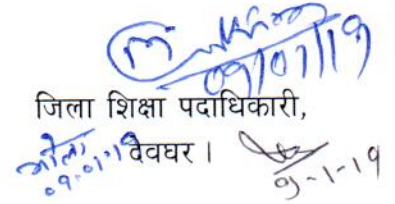 09/01/19
जिला शिक्षा पदाधिकारी,
09.01.19 देवघर । 9-1-19